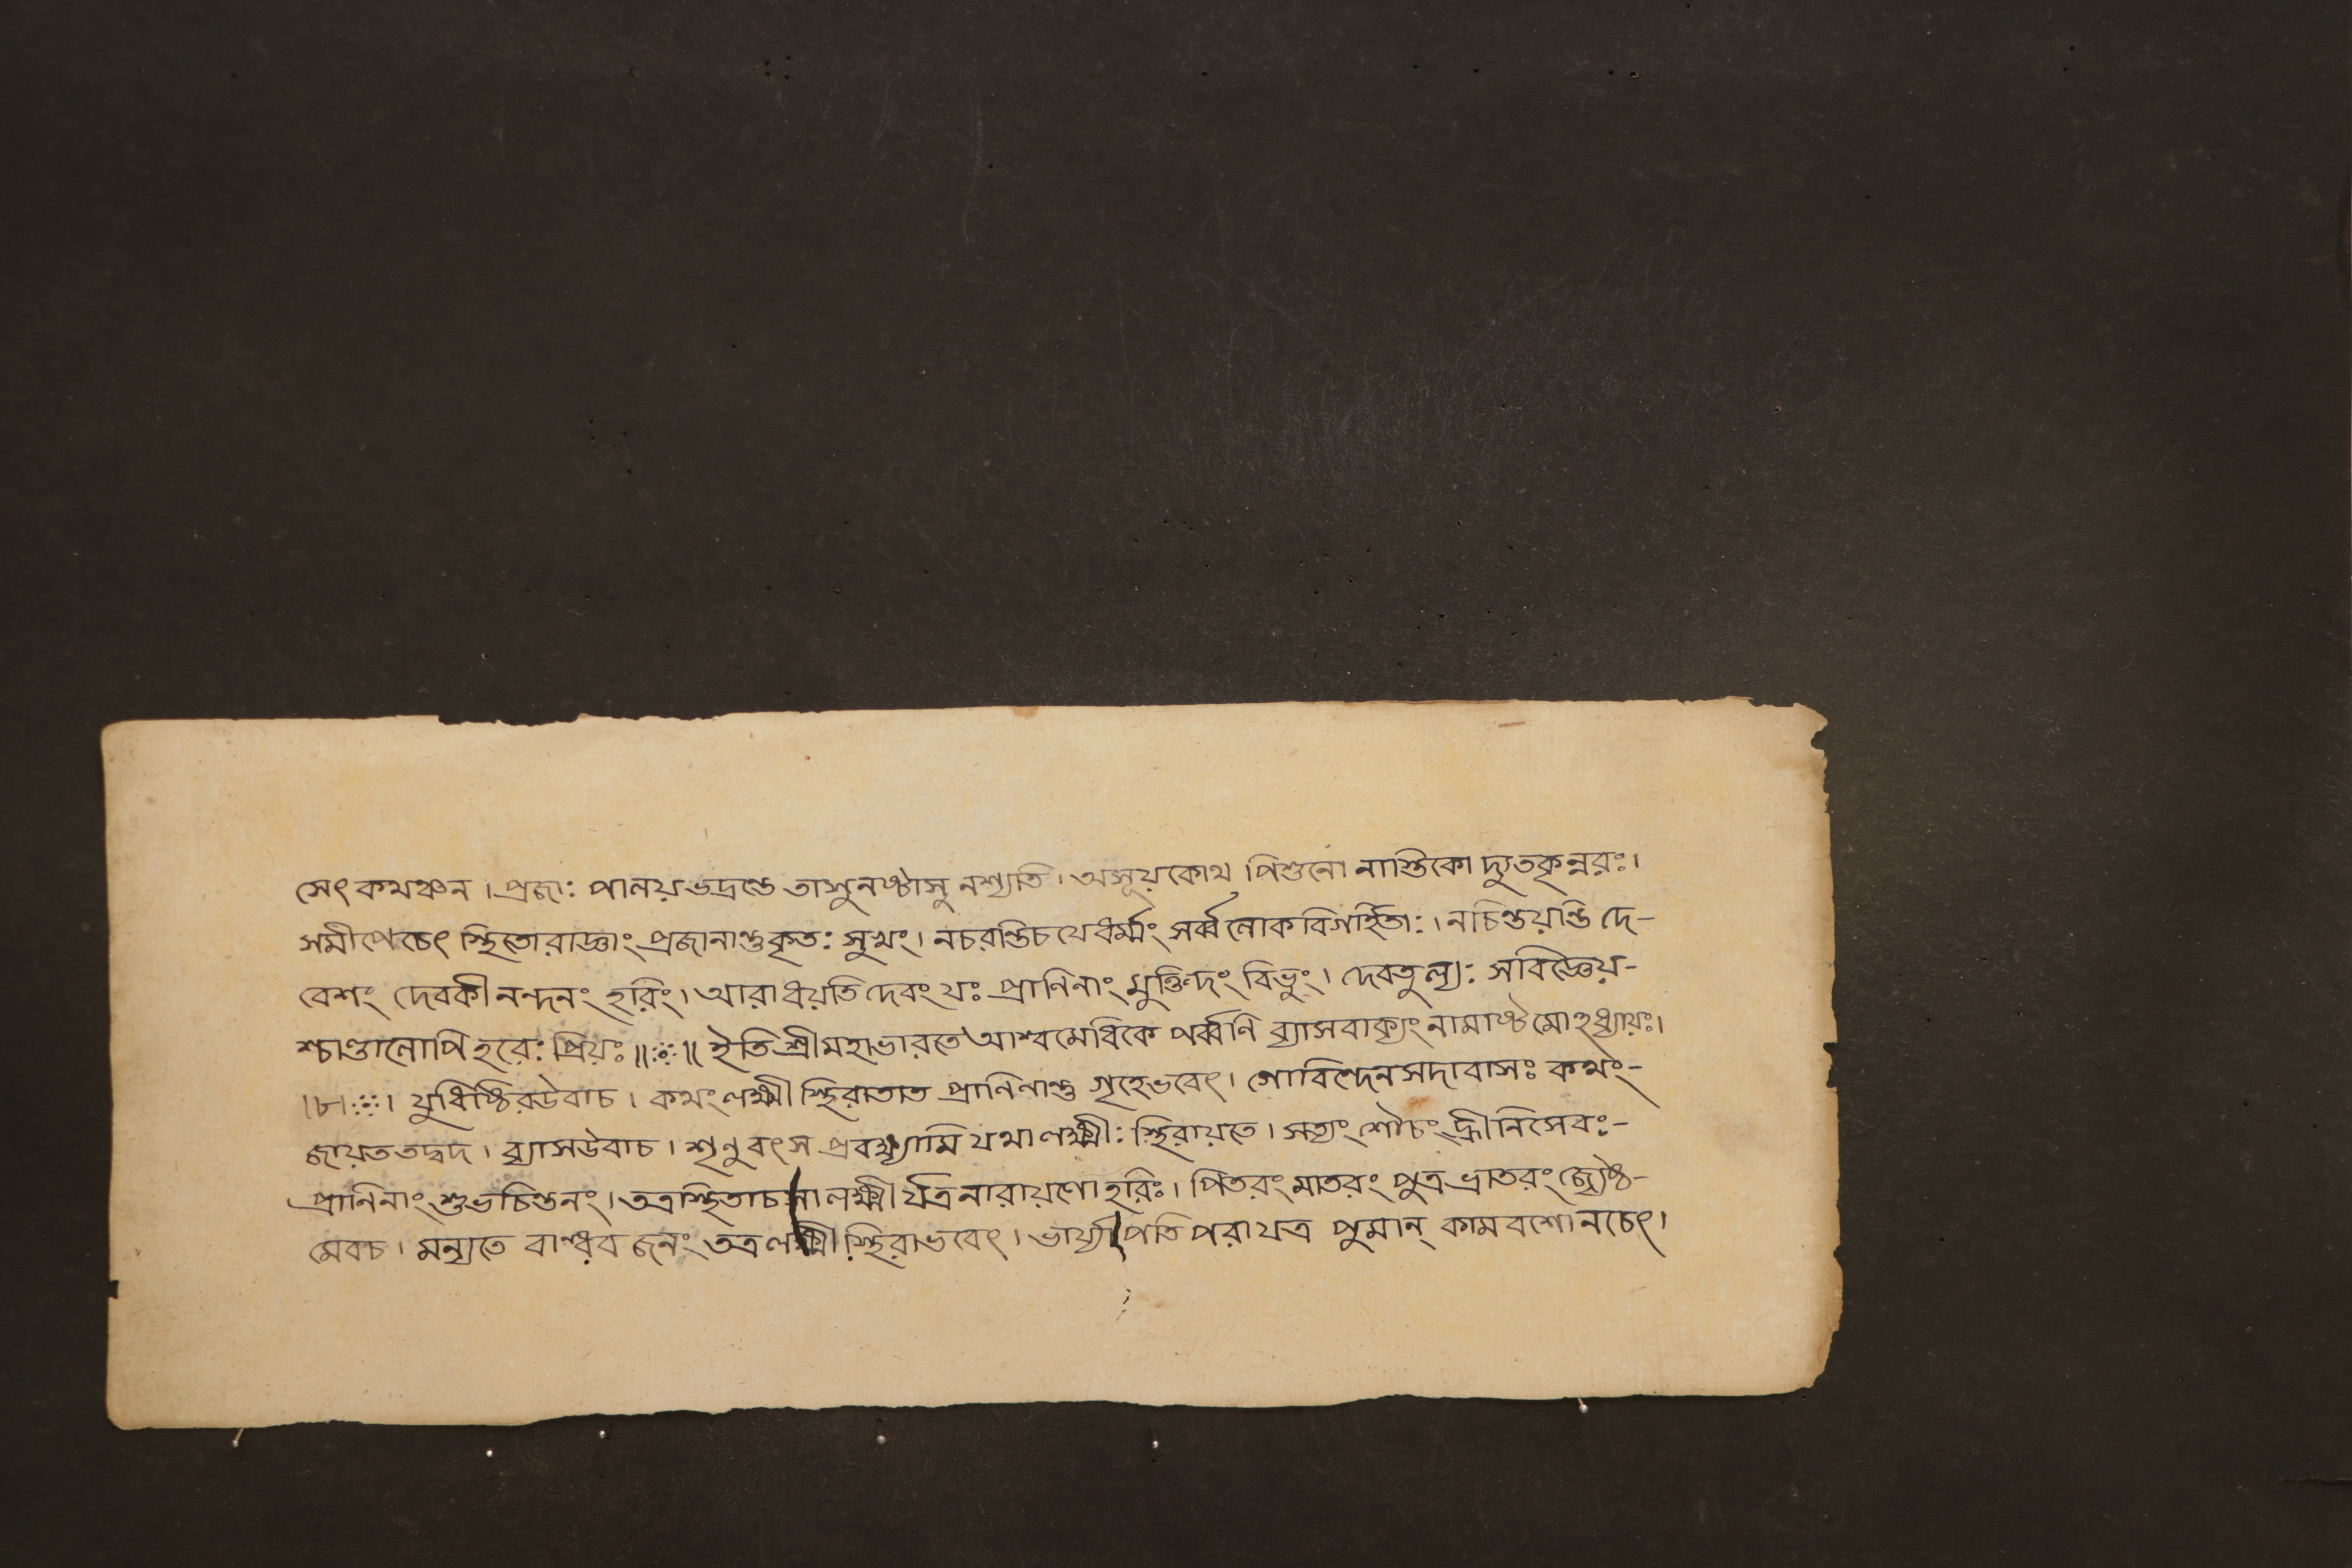 সেৎ কথঞ্চন । প্রজাঃ পালয় ভদ্রন্তে তাসু নষ্টাসু নশ্যতি । অসূয়কোথ পিশুনো নাস্তিকো দ্যুতকৃন্নরঃ ।
সমীপেচেৎ স্থিতোরাজ্ঞাং প্রজানান্তু কৃতঃ সুখং । নচরন্তিচযেধর্ম্মং সর্ব্বলোকবিগর্হিতাঃ । নচিন্তয়ন্তি দে-
বেশং দেবকীনন্দনং হরিং । আরাধয়তিদেবংযঃ প্রাণিনাং মুক্তিদং বিভুং । দেবতুল্যঃ সবিজ্ঞেয়-
শ্চাণ্ডালোপি হরেঃ প্রিয়ঃ ॥ ঃ ॥ ইতি শ্রীমহাভারতে আশ্বমেধিকে পর্ব্বণি ব্যাসবাক্যং নামাষ্টমোঽধ্যায়ঃ ।
।৮। ঃ । যুধিষ্ঠিরউবাচ । কথংলক্ষ্মী স্থিরাতাত প্রাণিনান্তু গৃহেভবেৎ । গোবিন্দেনসদাবাসঃ কথং-
জায়ততদ্বদ । ব্যাসউবাচ । শৃনুবৎস প্রবক্ষ্যামি যথালক্ষ্মীঃ স্থিরায়তে । সত্যং শৌচং হ্রীনিসেবঃ-
প্রাণিনাং শুভচিন্তনং । তত্রস্থিতাচসা লক্ষ্মীর্যত্রনারায়ণোহরিঃ । পিতরং মাতরং পুত্র ভ্রাতরং জ্যেষ্ঠ-
মেবচ । মন্যতে বান্ধব জনং তত্রলক্ষ্মী স্থিরাভবেৎ । ভার্য্যাপতিপরাযত্র পুমান্ কামবশোনচেৎ ।